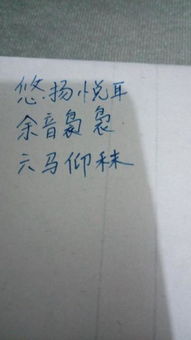 悠扬悦耳
余音袅袅
六马仰秣